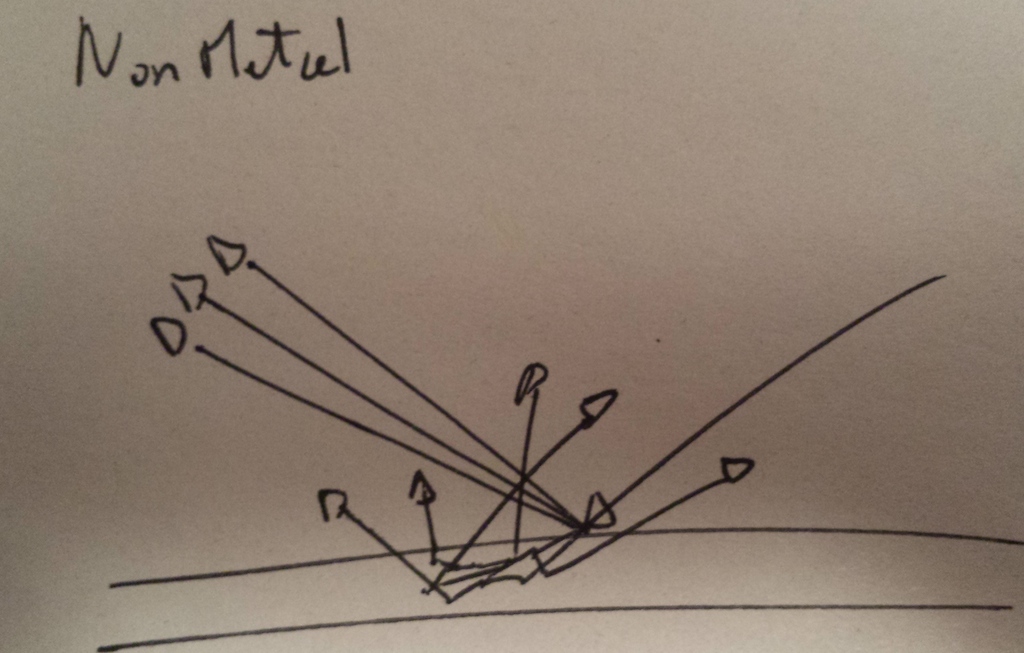 Non Metal